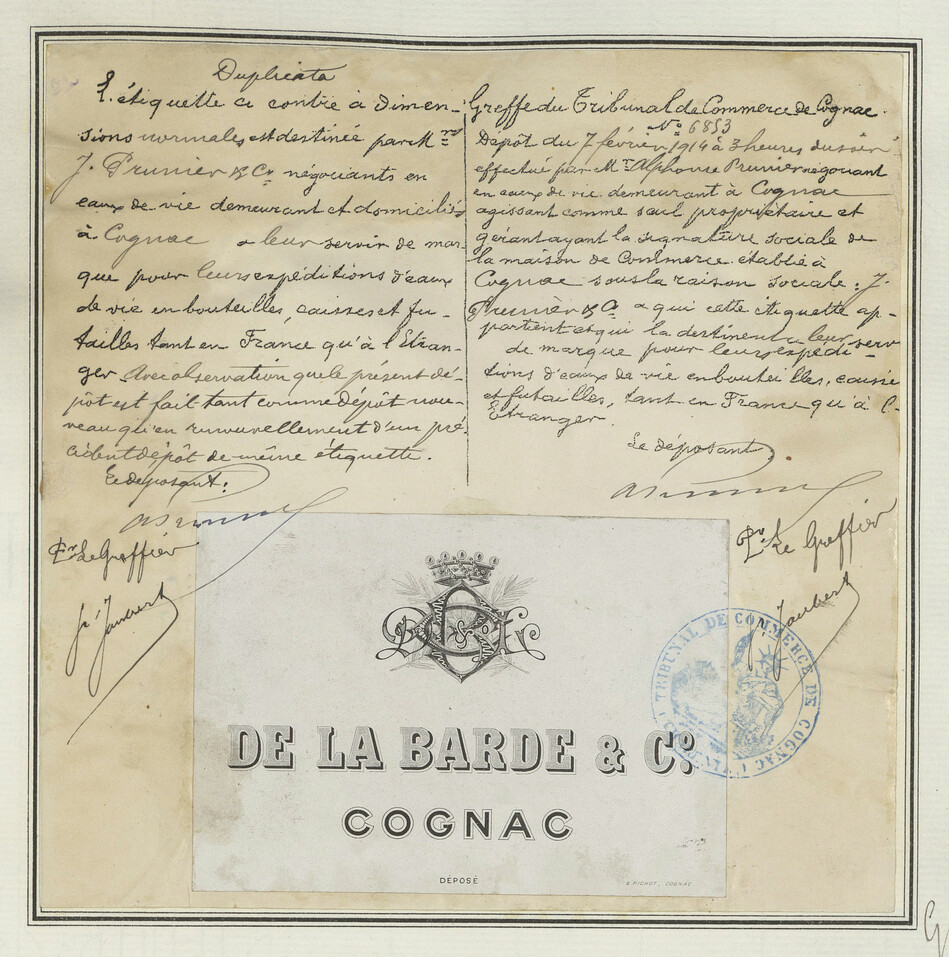 Duplicata
L'étiquette ci contre à dimen-
sions normales est destinée par M.rs
J. Prunier & Co négociants en
eaux de vie demeurant et domiciliés
à Cognac à leur servir de mar-
que pour leurs expéditions d'eaux
de vie en bouteilles, caisses et fu-
tailles tant en France qu'à l'Etran-
ger. Avec observation que le présent dé-
pôt est fait tant comme dépôt nou-
veau qu'en renouvellement d'un pré-
cédent dépôt de même étiquette.
Le déposant:
Pr. Le Greffier
Greffe du Tribunal de Commerce de Cognac.
No 6853
Dépôt du 7 février 1914 à 3 heures du soir
effectué par M.r Alphonse Prunier négociant
en eaux de vie demeurant à Cognac
agissant comme seul propriétaire et
gérant ayant la signature sociale de
la maison de Commerce établie à
Cognac sous la raison sociale: J.
Prunier & Co a qui cette étiquette ap-
partient et qui la destinent à leur serv
de marque pour leurs expédi-
tions d'eaux de vie en bouteilles, caisse
et futailles, tant en France qu'à l'-
Etranger.
Le déposant.
Pr. Le Greffier
Jaubert
Jaubert
DE LA BARDE & Co.
COGNAC
DÉPOSÉ
G. PICHOT, COGNAC
TRIBUNAL DE COMMERCE DE COGNAC
G